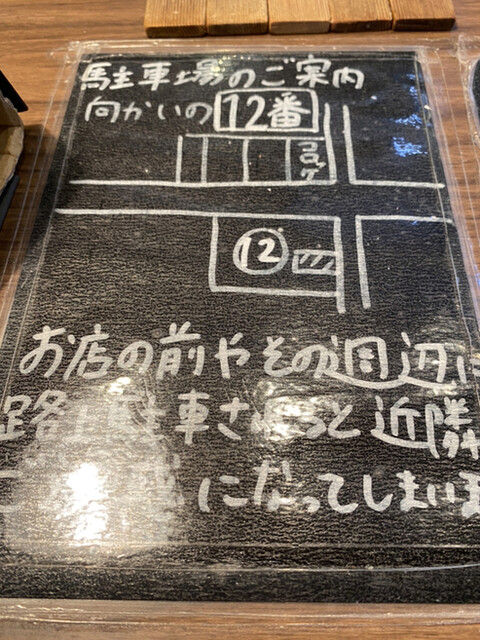 駐車場のご案内
向かいの12番
⑫
お店の前やその周辺に
路上駐車されると近隣
ご になってしまいま